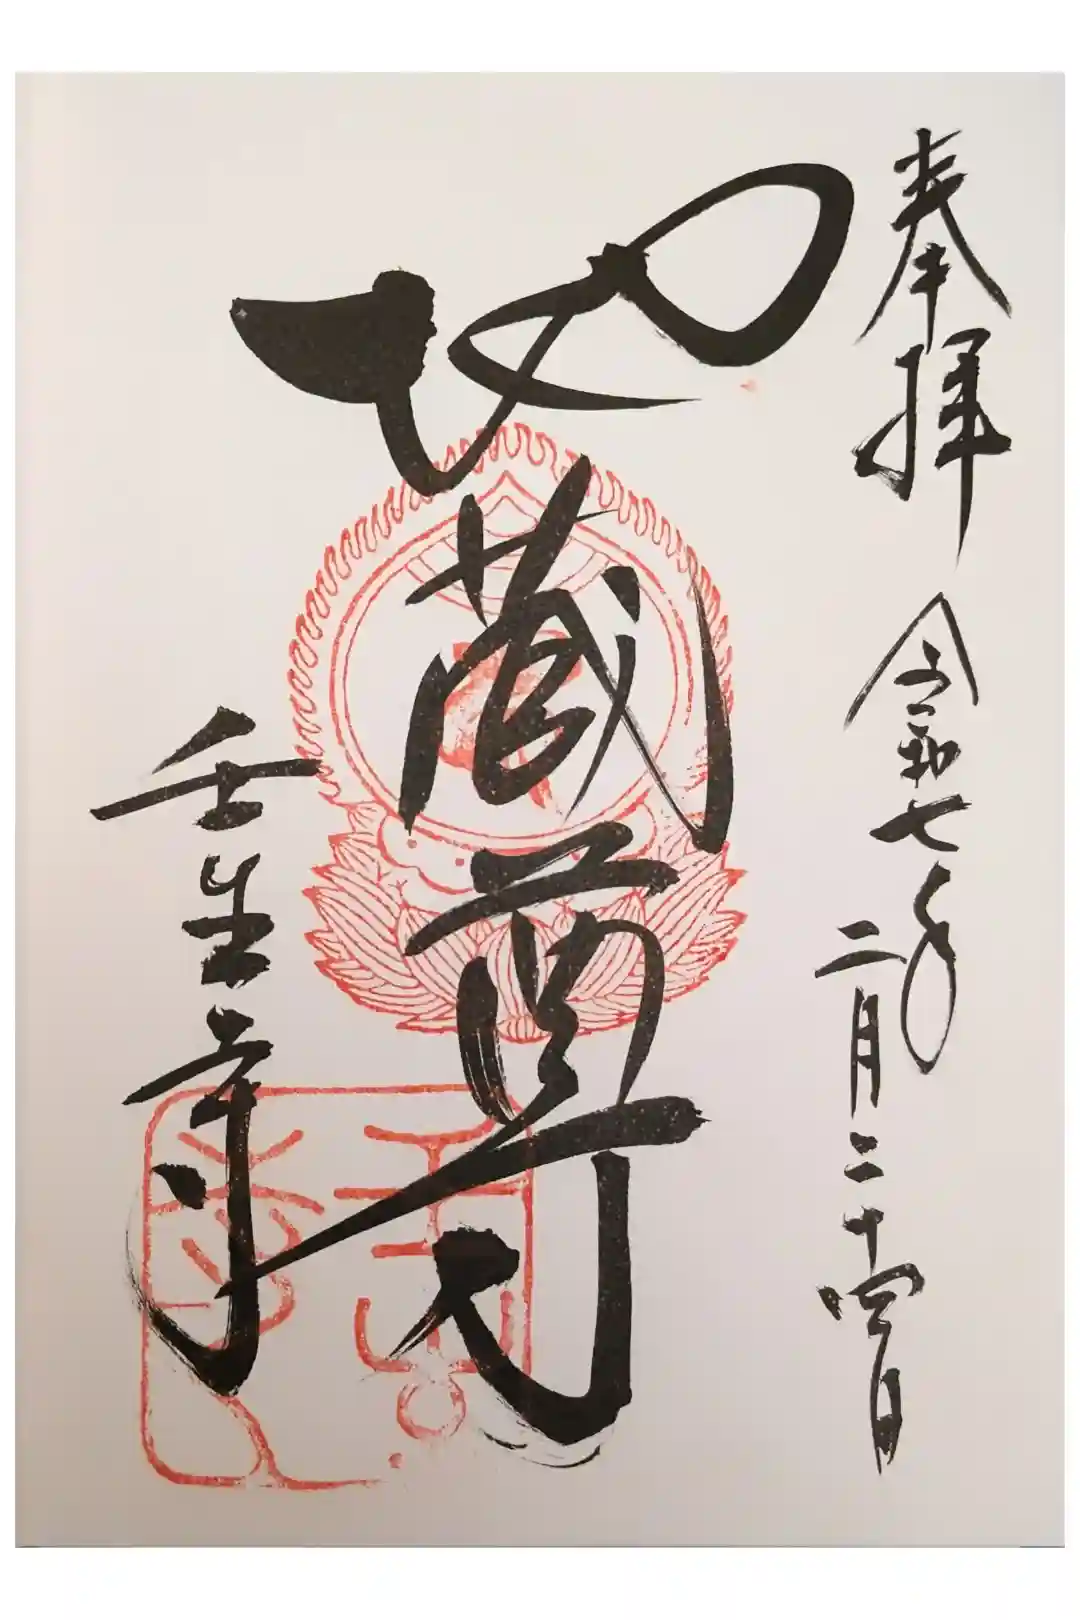 奉拝 令和七年二月二十四日
地蔵尊
壬生寺